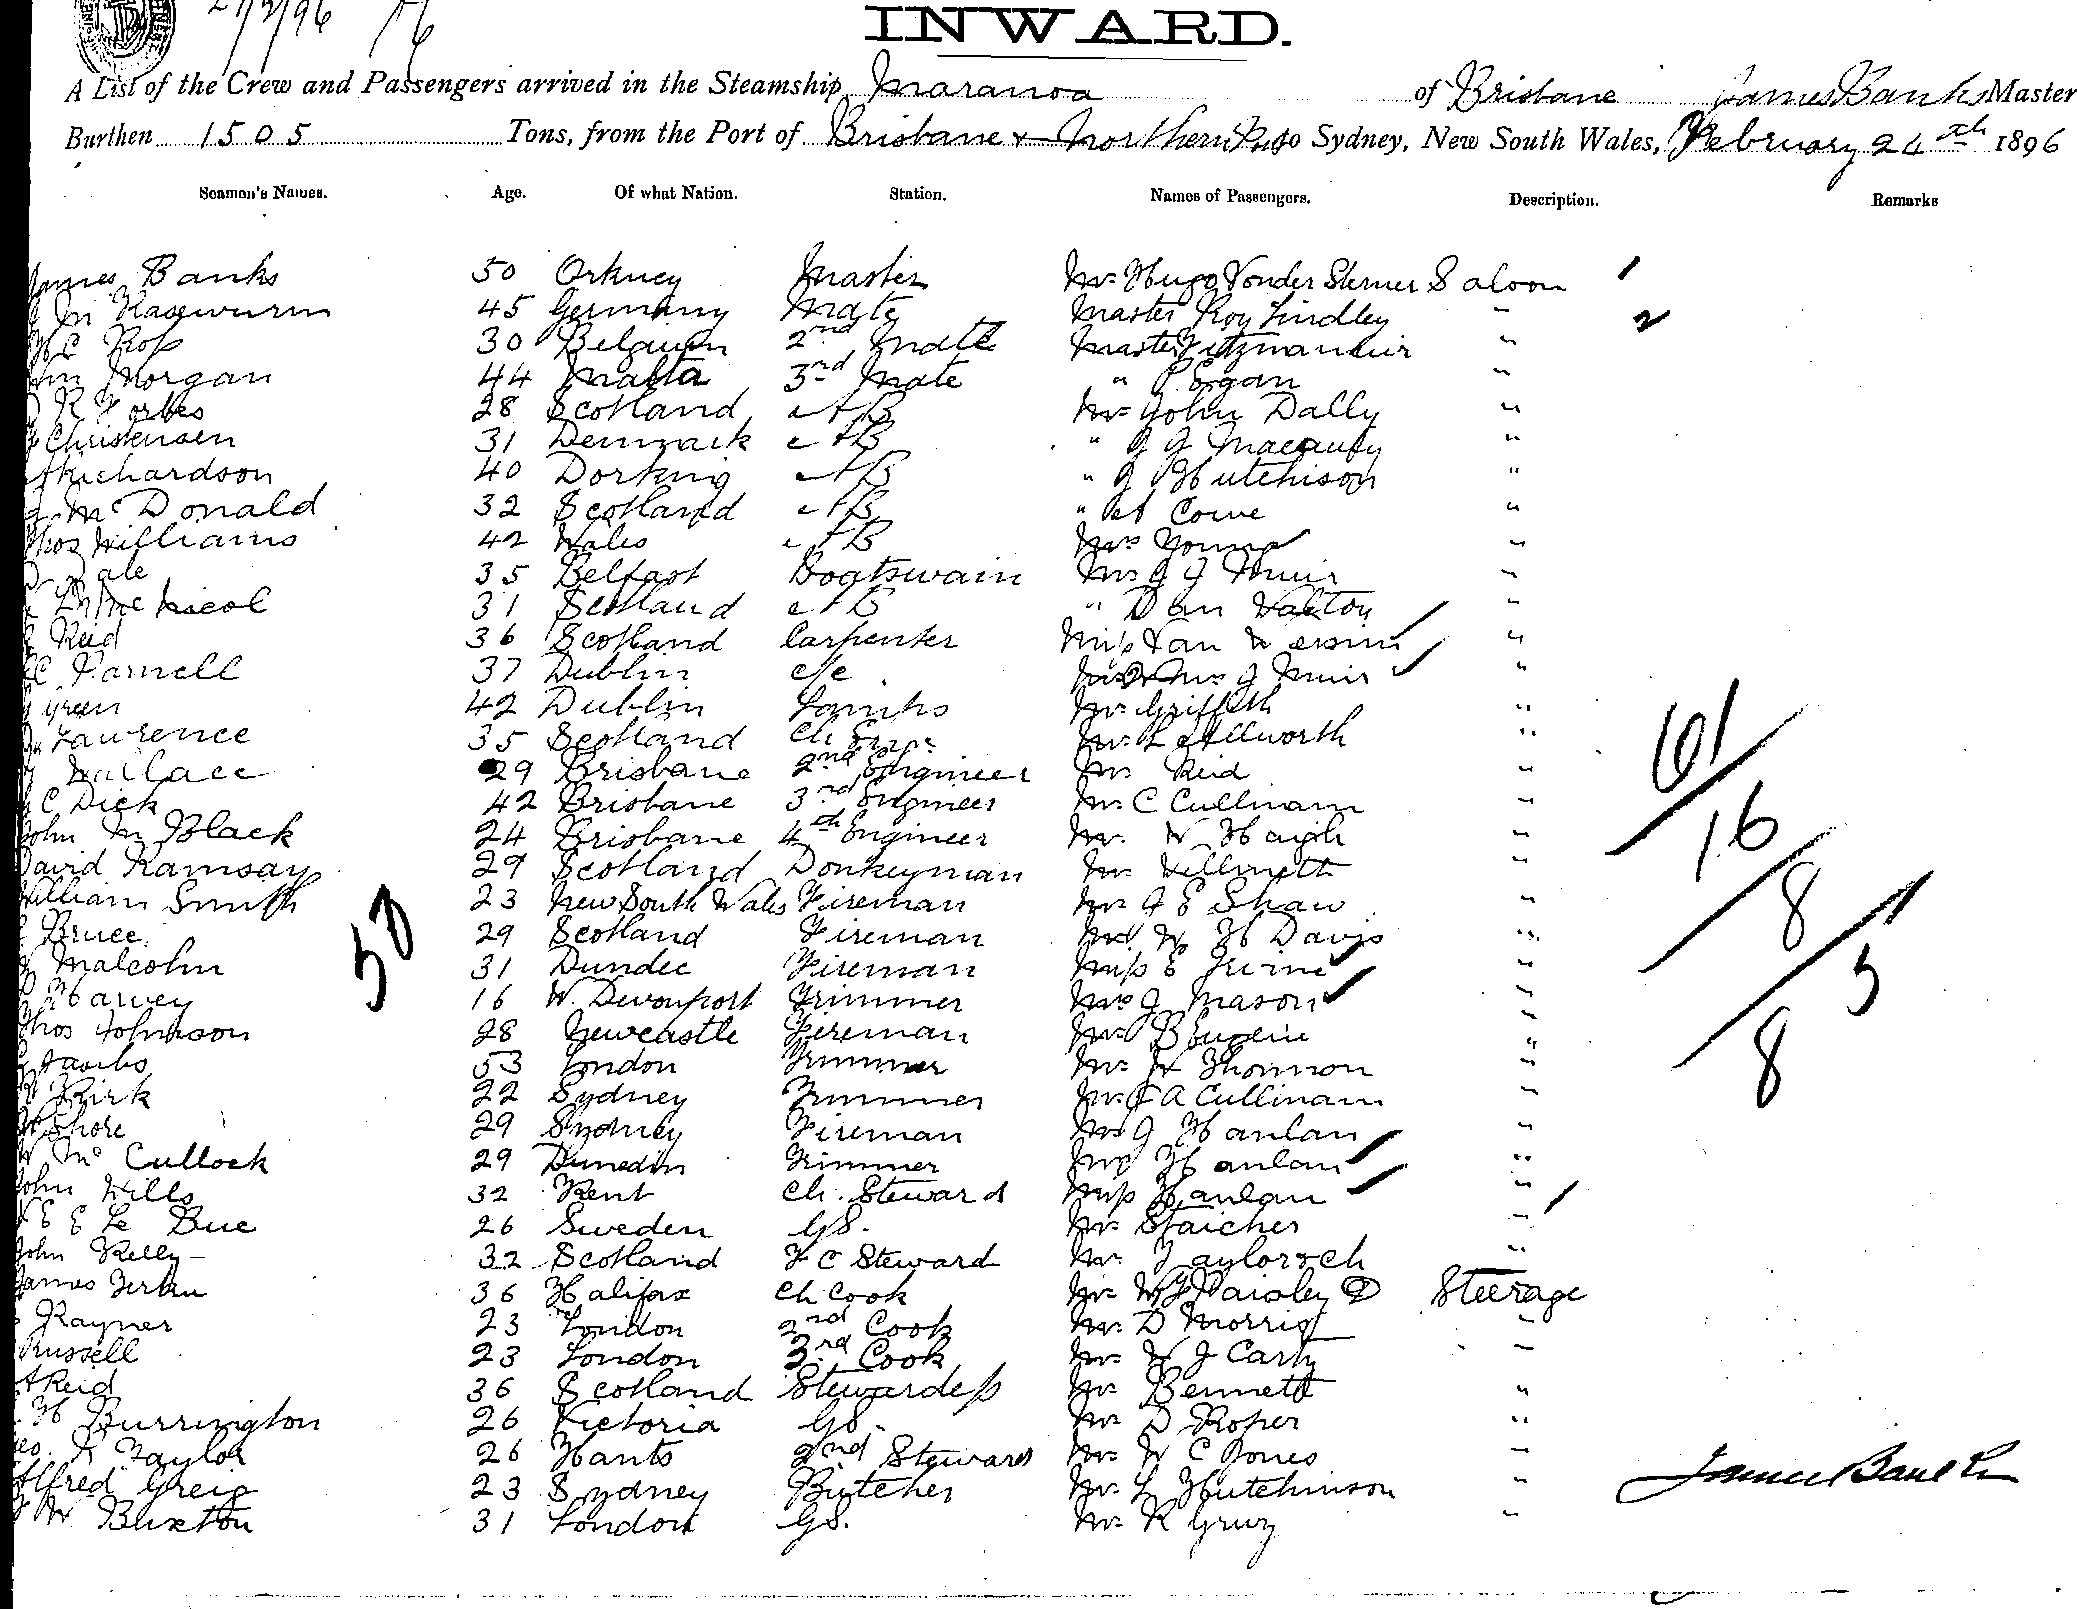 27/2/96 76
INWARD.
A List of the Crew and Passengers arrived in the Steamship Maranoa of Brisbane James Banks Master
Burthen 1505 Tons, from the Port of Brisbane & Northern Ports to Sydney, New South Wales, February 24th 1896
Seamen's Names. Age. Of what Nation. Station. Names of Passengers. Description. Remarks
James Banks 50 Orkney Master Mr Hugo Vonder Sterner Saloon 1
M Ragwurm 45 Germany Mate Master Roy Lindley " 2
Ross 30 Belgium 2nd Mate Master Fitzmaurice "
Morgan 44 Malta 3rd Mate " P. Egan "
R Forbes 28 Scotland AB Mr John Dally "
Christensen 31 Denmark AB " J J "
Richardson 40 Dorking AB " J Hutchison "
Mc Donald 32 Scotland AB " "
Thos Williams 42 Wales AB Mrs Young "
Dale 35 Belfast Boatswain Mr J J Muir "
McNicol 31 Scotland AB " Dan Walton "
Reid 36 Scotland Carpenter Miss Van "
Parnell 37 Dublin Mrs J Muir "
Green 42 Dublin Lamps Mr Griffith "
Lawrence 35 Scotland Ch Engr Mr L Allworth "
Wallace 29 Brisbane 2nd Engineer Mr Reid "
C Dick 42 Brisbane 3rd Engineer Mr C Cullinam "
John M Black 24 Brisbane 4th Engineer Mr W Haigh "
David Ramsay 29 Scotland Donkeyman Mr Willmott "
William Smith 23 New South Wales Fireman Mr J E Shaw "
Bruce 29 Scotland Fireman W H Davis "
Malcolm 31 Dundee Fireman Miss E Irvine "
Harvey 16 W. Devonport Trimmer Mrs J Mason "
Thos Johnson 28 Newcastle Fireman Mr "
Jacobs 53 London Trimmer Mr W Thomson "
Kirk 22 Sydney Trimmer Mr J A Cullinam "
Shore 29 Sydney Fireman Mr J Hanlan "
W Mc Cullock 29 Dunedin Trimmer Mrs Hanlan "
John Wills 32 Kent Ch. Steward Miss Hanlan "
E E Le Bue 26 Sweden GS. Mr Staicher "
John Kelly 32 Scotland F C Steward Mr Taylor & ch "
James 36 Halifax Ch Cook Mr W J Paisley Steerage
Rayner 23 London 2nd Cook Mr D Morris "
Russell 23 London 3rd Cook Mr W J Carty "
A Reid 36 Scotland Stewardess Mr Bennett "
H Burrington 26 Victoria GS. Mr D Roper "
Taylor 26 Hants 2nd Steward Mr W C Jones "
Alfred Greig 23 Sydney Butcher Mr L Hutchinson "
W Buxton 31 London GS. Mr R "
50
61
16
8
5
8
James Banks